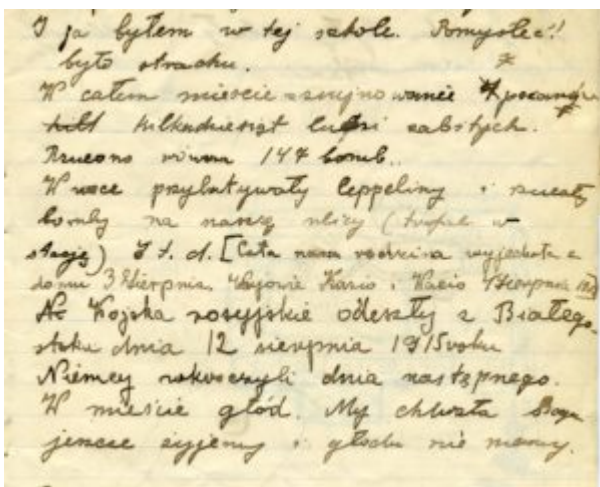 I ja byłem w tej szkole. Pomyśleć!
było strachu.
W całem mieście zrujnowanie
kilkadziesiąt ludzi zabitych.
Rzucono równo 147 bomb..
W noce przylatywały Ceppeliny i rzucały
bomby na naszą ulicę (trafiał w
stację) I t. d. [Cała nasza rodzina wyjechała z
domu 3 Sierpnia. Wujowie Kazio i Wacio Sierpnia
Wojska rosyjskie odeszły z Białego-
stoku dnia 12 sierpnia 1915 roku
Niemcy wkroczyli dnia następnego.
W mieście głód. My chwała Bogu
jeszcze żyjemy i głodu nie mamy.